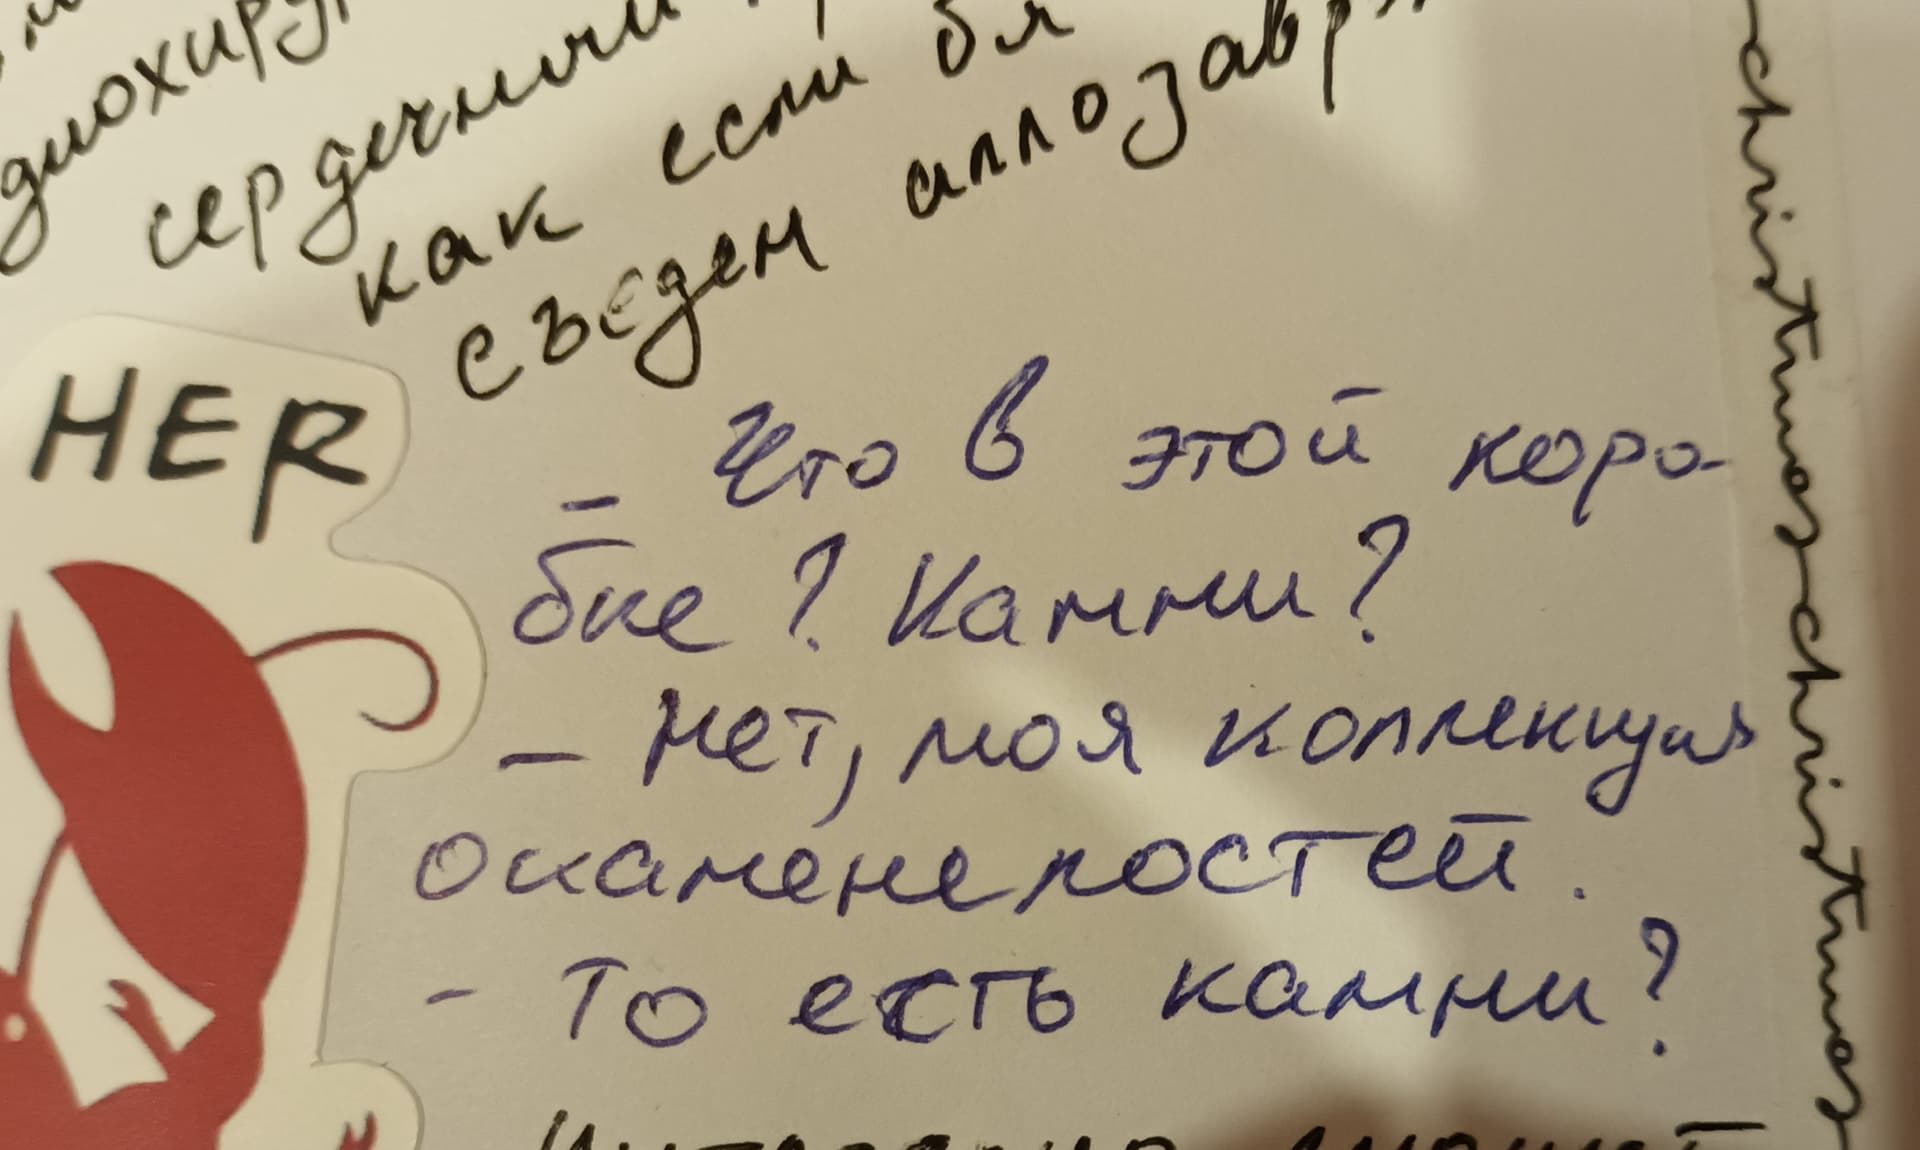 сердечный
как если бы
съеден аллозавр
HER
– Что в этой коро-
бке? Камни?
– Нет, моя коллекция
окаменелостей.
- То есть камни?
christmas christmas